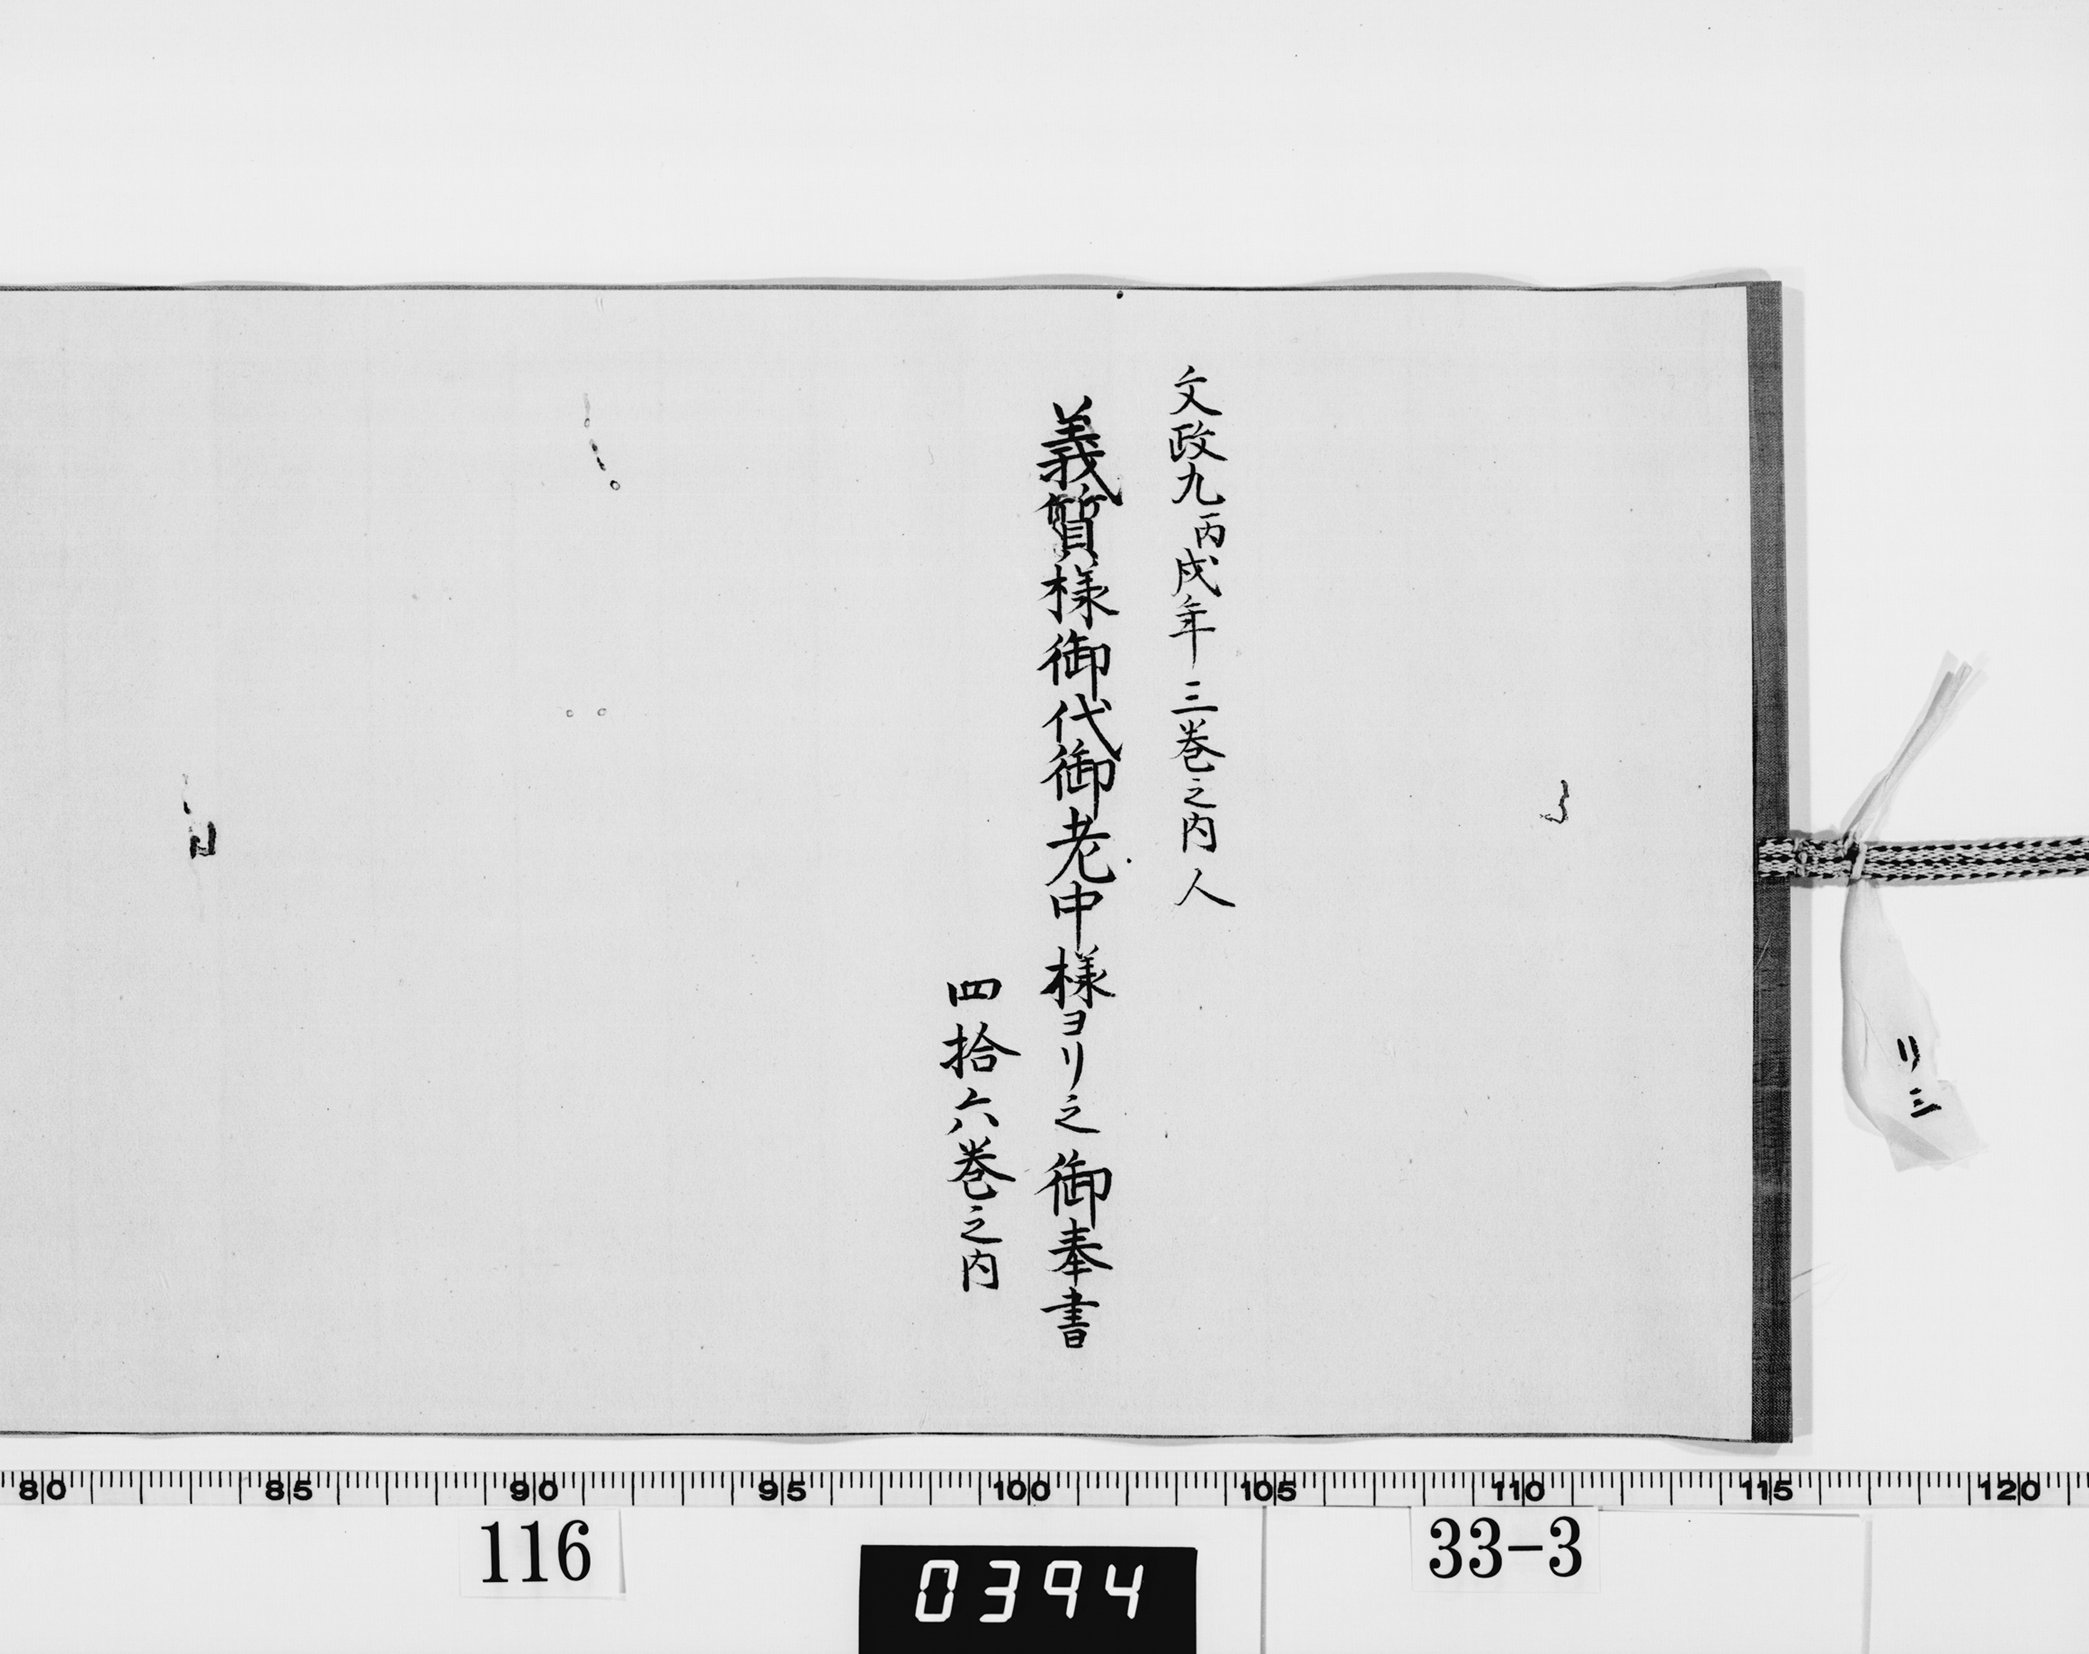 文政九丙戌年三巻之内人
義質様御代御老中様ヨリ之御奉書
四拾六巻之内
80 85 90 95 100 105 110 115 120
116
0394
33-3